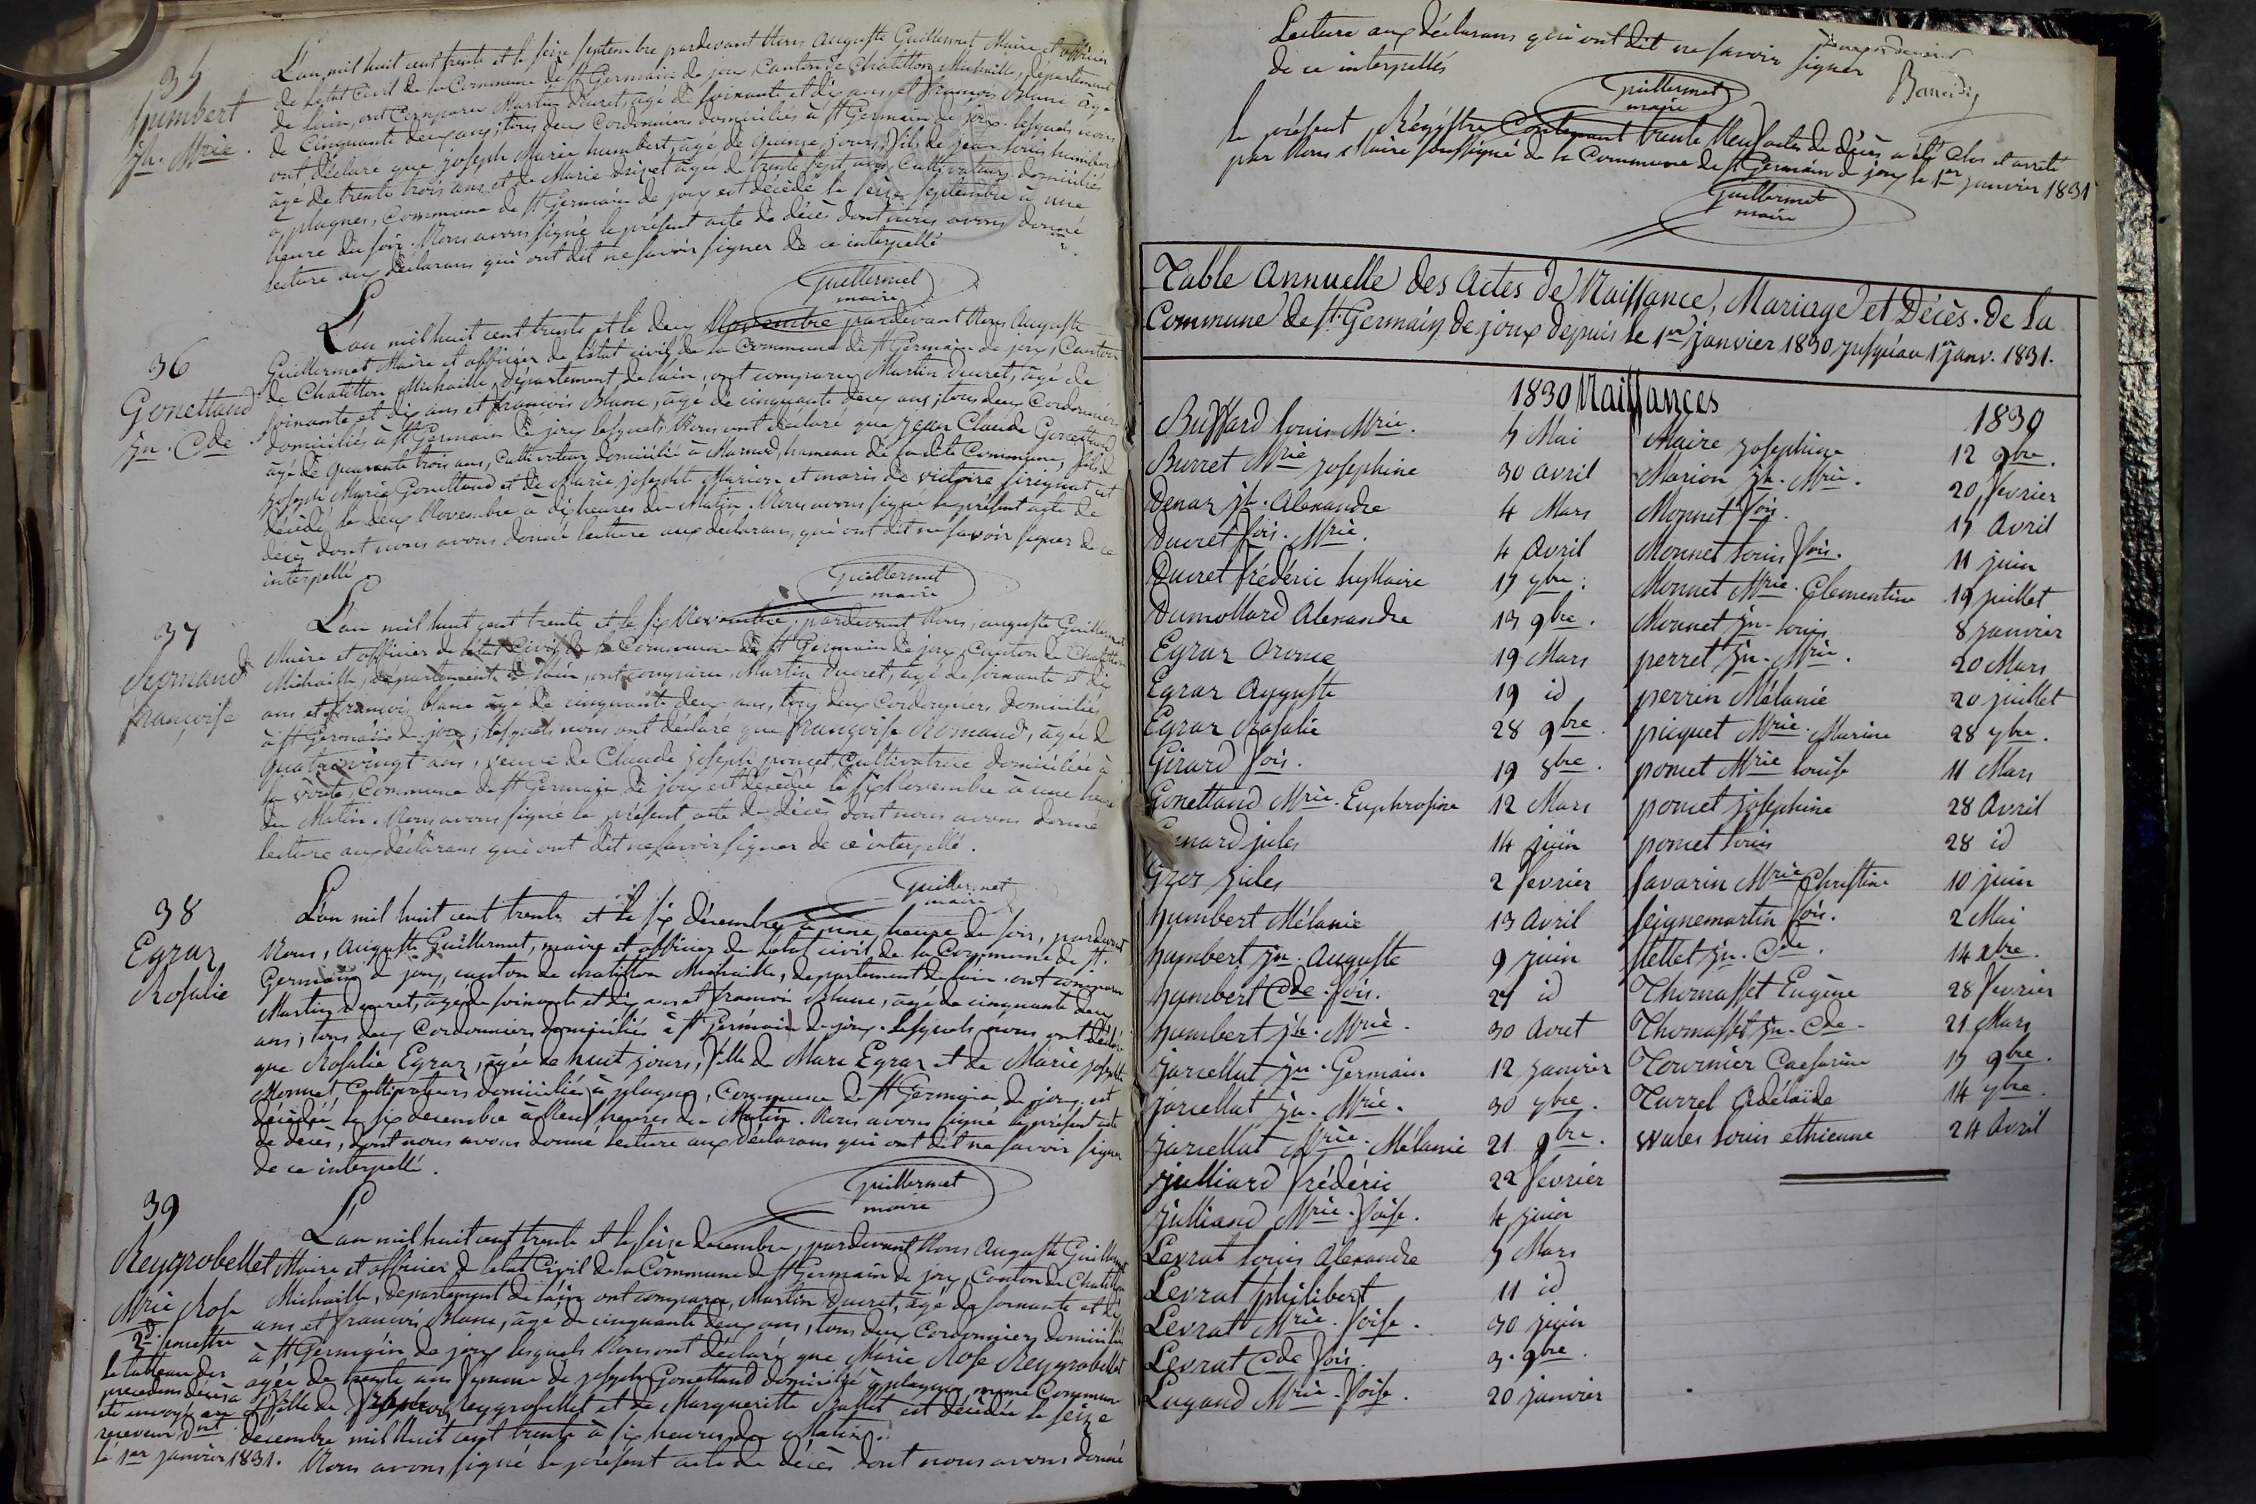 35
humbert
jh. Mrie.
L'an mil huit cent trente et le seize septembre pardevant Nous auguste Guillermet Maire et officier
de l'etat Civil de la Commune de st Germain de joux Canton de Chatillon Michaille, département
de lain, ont Comparu Martin ducret, agé de soixante et dix ans et françois Blanc agé
de Cinquante deux ans, tous deux Cordonniers domiciliés à st Germain de joux lesquels nous
ont déclaré que joseph Marie humbert, agé de quinze jours, fils de jean louis humbert
agé de trente trois ans et de Marie agée de trente sept ans, Cultivateurs domiciliés
à plagnes, Commune de st Germain de joux est décédé le seize septembre à une
heure du soir. Nous avons signé le présent acte de décès dont nous avons donné
lecture aux déclarans qui ont dit ne savoir signer de ce interpellé
Guillermet
maire
36
Gonettand
jn. Cde
L'an mil huit cent trente et le deux Novembre pardevant Nous Auguste
Guillermet Maire et officier de l'état civil de la Commune de st Germain de joux, Canton
de Chatillon Michaille, département de lain, ont comparu Martin ducret, agé de
soixante et dix ans et françois Blanc, agé de cinquante deux ans, tous deux Cordonniers
domiciliés à st Germain de joux lesquels Nous ont déclaré que jean Claude Gonettand
agé de quarante trois ans, Cultivateur domicilié à Marnod, hameau de la dite Commune, fils de
joseph Marie Gonettand et de Marie josephte Marion et maris de victoire est
décédé le deux Novembre à dix heures du Matin. Nous avons signé le présent acte de
decès dont nous avons donné lecture aux déclarans, qui ont dit ne savoir signer de ce
interpellé.
Guillermet
maire
37
Romand
françoise
L'an mil huit cent trente et le six Novembre, pardevant Nous, auguste Guillermet
Maire et officier de l'état Civil de la Commune de st Germain de joux, Canton de Chatillon
Michaille, département de lain, ont comparu Martin ducret, agé de soixante et dix
ans et françois blanc agé de cinquante deux ans, tous deux Cordonniers domiciliés
à st Germain de joux, lesquels nous ont déclaré que françoise Romand, agée de
quatre vingt ans, veuve de Claude joseph poncet, Cultivatrice domiciliée à
la voute, Commune de st Germain de joux est décédée le six Novembre à une heure
du Matin. Nous avons signé le présent acte de décès dont nous avons donné
lecture aux déclarans qui ont dit ne savoir signer de ce interpellé.
Guillermet
maire
38
Egraz
Rosalie
L'an mil huit cent trente et le six décembre à une heure du soir, pardevant
Nous, Auguste Guillermet, maire et officier de l'etat civil de la Commune de st.
Germain de joux, canton de chatillon Michaille, departement de lain. ont comparu
Martin ducret, agé de soixante et dix ans et françois Blanc, agé de cinquante deux
ans, tous deux Cordonniers domiciliés à st Germain de joux. Lesquels nous ont déclaré
que Rosalie Egraz, agée de huit jours, fille de Marc Egraz et de Marie josephte
Monnet, Cultivateurs domiciliés à plagnes, commune de st Germain de joux, est
décédée le six decembre à Neuf heures du Matin. Nous avons signé le présent acte
de deces, dont nous avons donné lecture aux déclarans qui ont dit ne savoir signer
de ce interpellé.
Guillermet
maire
39
Reygrobellet
Mrie Rose
2d. semestre
Le tableau des
precedens décès a
été envoyé au
receveur
le 1er janvier 1831.
L'an mil huit cent trente et le seize decembre, pardevant Nous Auguste Guillermet
Maire et officier de l'etat Civil de la Commune de st Germain de joux, Canton de Chatillon
Michaille, departement de lain ont comparu, Martin ducret, agé de soixante et dix
ans et françois Blanc, agé de cinquante deux ans, tous deux Cordonniers domiciliés
à st Germain de joux lesquels Nous ont déclaré que Marie Rose Reygrobellet
agée de trente ans femme de joseph Gonettand domiciliée à plagnes même Commune
et fille de Reygrobellet et de Marguerite est décédée le seize
decembre mil huit cent trente à six heures du Matin.
Nous avons signé le présent acte de décès dont nous avons donné
Lecture aux déclarans qui ont dit ne savoir signer
de ce interpellés
Guillermet
maire
le présent Régistre Contenant trente Neuf actes de décès a été Clos et arreté
par Nous Maire soussigné de la Commune de st Germain de joux le 1er janvier 1831
Guillermet
maire
Table Annuelle des Actes de Naissance, Mariage et Décès. de la
Commune de st. Germain de joux depuis le 1er janvier 1830 jusqu'au 1er janv. 1831.
1830 Naissances 1830
Buffard louis Mrie. 5 Mai
Burret Mrie josephine 30 avril
Denaz jh. Alexandre 4 Mars
Ducret fois. Mrie. 4 avril
Ducret frédéric hyllaire 17 7bre.
Dumollard Alexandre 13 9bre.
Egraz Oronce 19 Mars
Egraz Auguste 19 id
Egraz Rosalie 28 9bre.
Girard fois. 19 8bre.
Gonettand Mrie. Euphrosine 12 Mars
jules 14 juin
Gros jules 2 fevrier
humbert Mélanie 13 Avril
humbert jn. Auguste 9 juin
humbert Cde. fois. 27 id
humbert jh. Mrie. 30 Aout
jarcellat jn. Germain 12 janvier
jarcellat jn. Mrie. 30 7bre.
jarcellat Mrie. Mélanie 21 9bre.
julliard frédéric 22 fevrier
julliand Mrie. foise. 4 juin
Levrat louis Alexandre 5 Mars
Levrat philibert 11 id
Levrat Mrie. foise. 30 juin
Levrat Cde fois. 3. 9bre.
Lugand Mrie. foise. 20 janvier
Maire josephine 12 9bre.
Marion jh. Mrie. 20 fevrier
Monnet fois. 15 Avril
Monnet louis fois. 11 juin
Monnet Mrie. Clementine 19 juillet
Monnet jn. louis 8 janvier
perret jn. Mrie. 20 Mars
perrin Mélanie 20 juillet
piquet Mrie. Marine 28 7bre.
poncet Mrie louise 11 Mars
poncet josephine 28 Avril
poncet louis 28 id
savarin Mrie Christine 10 juin
seignemartin fois. 2 Mai
Tettet jn. Cde. 14 xbre.
Thomasset Eugène 28 fevrier
Thomasset jn. Cde. 21 Mars
Tournier Caesarine 15 9bre.
Turrel Adélaïde 14 7bre.
Wales louis ethienne 24 Avril